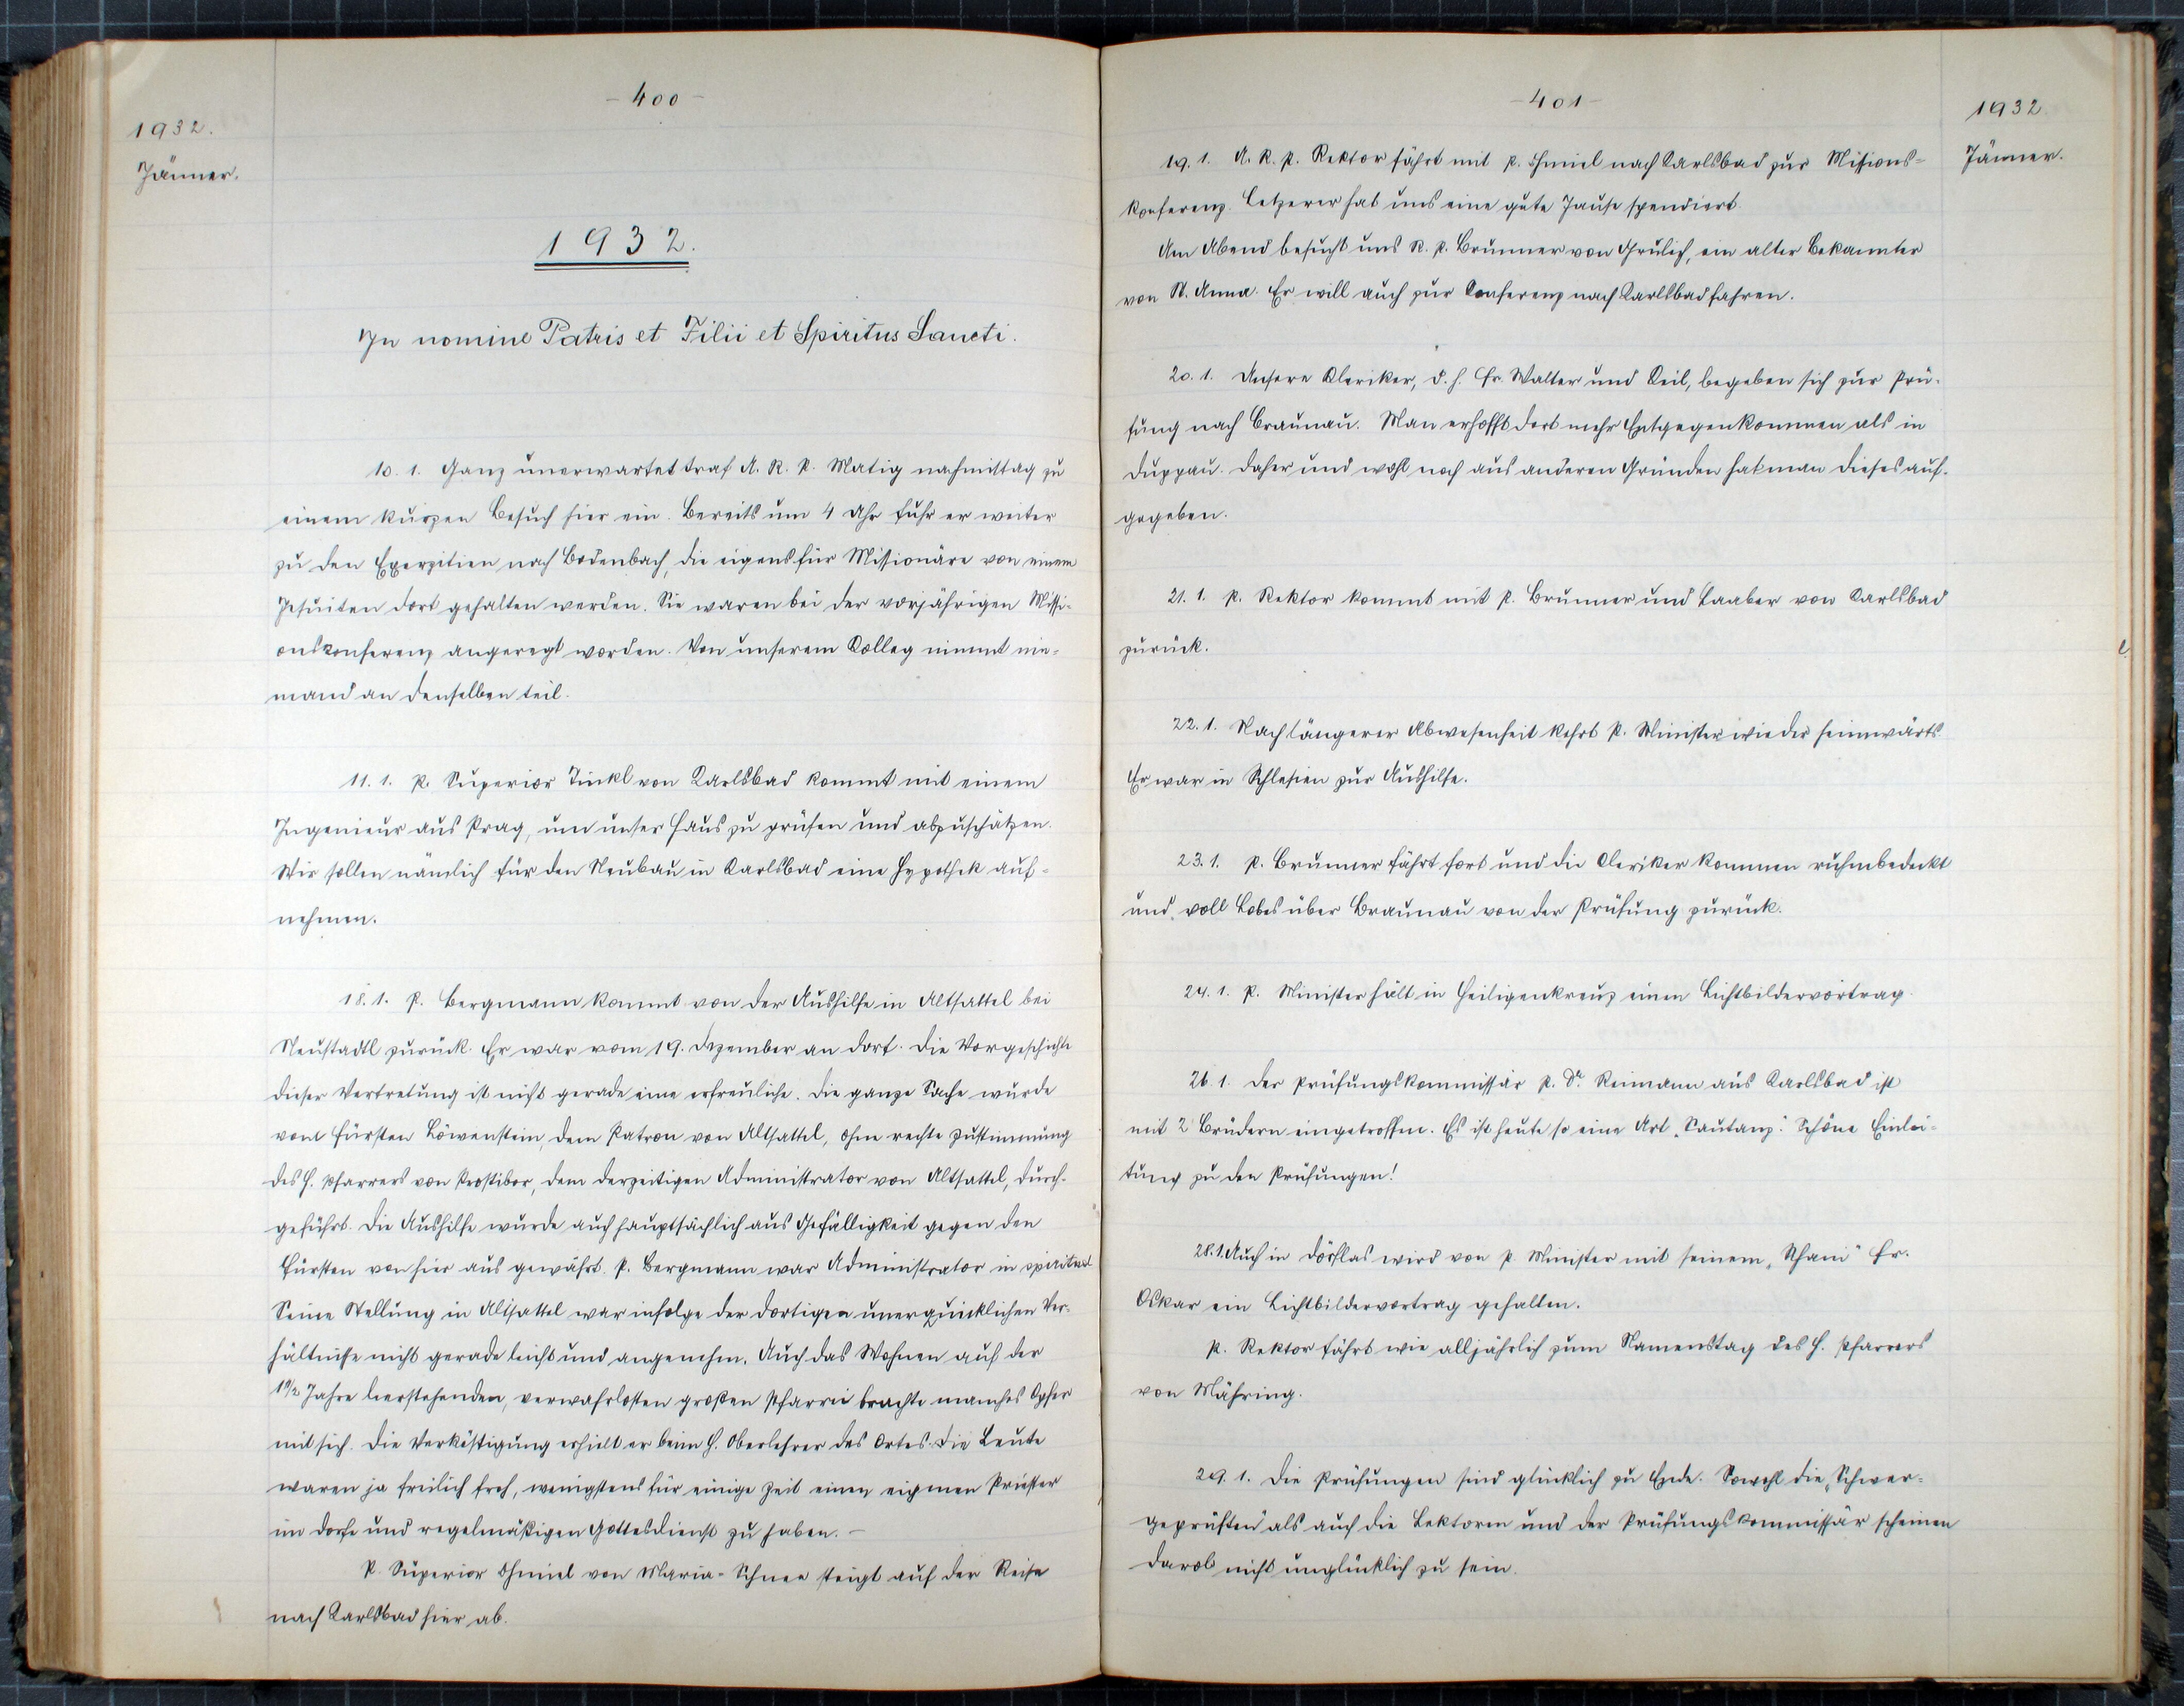 - 400 -
1932.
Jänner.
1932.
In nomine Patris et Filii et Spiritus Sancti.
10. 1. Ganz unerwartet traf A. R. P. Matig nachmittag zu
einem kurzen Besuch hier ein. Bereits um 4 Uhr fuhr er weiter
zu den Exerzitien nach Bodenbach, die eigens für Missionäre von einem
Jesuiten dort gehalten werden. Sie waren bei der vorjährigen Missi-
onskonferenz angeregt worden. Von unserem Kolleg nimmt nie-
mand an denselben teil.
11. 1. P. Superior Tinkl von Karlsbad kommt mit einem
Ingenieur aus Prag, um unser Haus zu prüfen und abzuschätzen.
Wir sollen nämlich für den Neubau in Karlsbad eine Hypothek auf-
nehmen.
18. 1. P. Bergmann kommt von der Aushilfe in Altsattel bei
Neustadtl zurück. Er war vom 19. Dezember an dort. Die Vorgeschichte
dieser Vertretung ist nicht gerade eine erfreuliche. Die ganze Sache wurde
vom Fürsten Löwenstein, dem Patron von Altsattel, ohne rechte Zustimmung
des H. Pfarrers von Prostibor, dem derzeitigen Administrator von Altsattel, durch-
geführt. Die Aushilfe wurde auch hauptsächlich aus Gefälligkeit gegen den
Fürsten von hier aus gewährt. P. Bergmann war Administrator in spiritual
Seine Stellung in Altsattel war infolge der dortigen unerquicklichen Ver-
hältnisse nicht gerade leicht und angenehm. Auch das Wohnen auf der
1 1/2 Jahre leerstehenden, verwahrlosten großen Pfarrei brachte manches Opfer
mit sich. Die Verköstigung erhielt er beim H. Oberlehrer des Ortes. Die Leute
waren ja freilich froh, wenigstens für einige Zeit einen eigenen Priester
im Dorfe und regelmäßigen Gottesdienst zu haben. -
P. Superior Chmiel von Maria-Schnee steigt auf der Reise
nach Karlsbad hier ab.
- 401 -
1932.
Jänner.
19. 1. A. R. P. Rektor fährt mit P. Chmiel nach Karlsbad zur Missions-
konferenz. Letzerer hat uns eine gute Jause spendiert.
Am Abend besucht uns R. P. Brunner von Grulich, ein alter Bekannter
von St. Anna. Er will auch zur Conferenz nach Karlsbad fahren.
20. 1. Unsere Kleriker, d. h. Fr. Walter und Keil, begeben sich zur Prü-
fung nach Braunau. Man erhofft dort mehr Entgegenkommen als in
Duppau. Daher und wohl noch aus anderen Gründen hat man dieses auf-
gegeben.
21. 1. P. Rektor kommt mit P. Brunner und Taaber von Karlsbad
zurück.
22. 1. Nach längerer Abwesenheit kehrt P. Minister wieder heimwärts.
Er war in Schlesien zur Aushilfe.
23. 1. P. Brunner fährt fort und die Cleriker kommen ruhmbedeckt
und voll Lobes über Braunau von der Prüfung zurück.
24. 1. P. Minister hält in Heiligenkreuz einen Lichtbildervortrag.
26. 1. Der Prüfungskommissär P. Dr. Reimann aus Karlsbad ist
mit 2 Brüdern eingetroffen. Es ist heute so eine Art „Sautanz". Schöne Einlei-
tung zu den Prüfungen!
28. 1. Auch in Dörflas wird von P. Minister mit seinem „Schani" Fr.
Oskar ein Lichtbildervortrag gehalten.
P. Rektor fährt wie alljährlich zum Namenstag des H. Pfarrers
von Mähring.
29. 1. Die Prüfungen sind glücklich zu Ende. Sowohl die „Schwer-
geprüften" als auch die Lektoren und der Prüfungskommissär scheinen
darob nicht unglücklich zu sein.